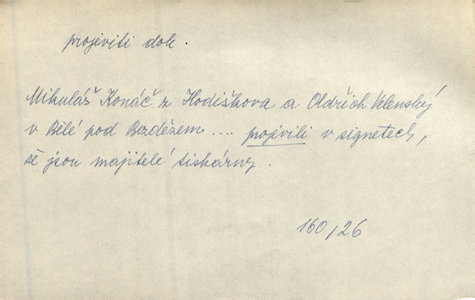 projeviti dok.
Mikuláš Konáč z Hodiškova a Oldřich Velenský
v Bělé pod Bezdězem .... projevili v signetech,
že jsou majitelé tiskárny.
160/26